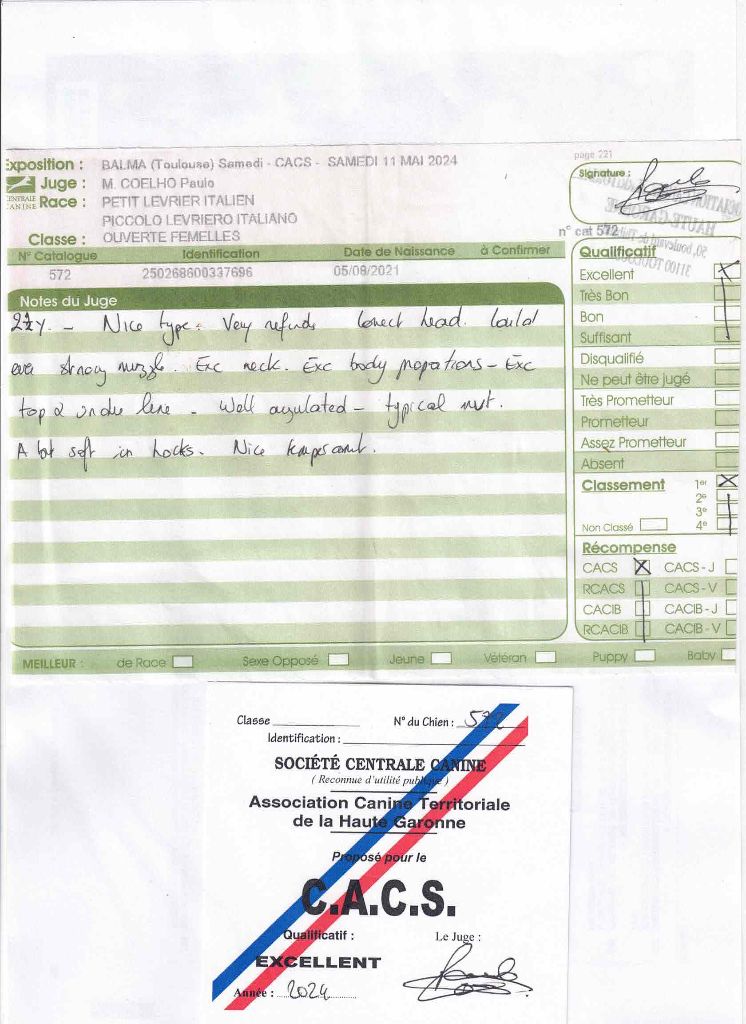 Exposition : BALMA (Toulouse) Samedi - CACS - SAMEDI 11 MAI 2024
page 221
Juge : M. COELHO Paulo
CENTRALE CANINE
Race : PETIT LEVRIER ITALIEN
PICCOLO LEVRIERO ITALIANO
Classe : OUVERTE FEMELLES
n° cat 572
Signature :
HAUTE GARONNE
31100 TOULOUSE
N° Catalogue Identification Date de Naissance à Confirmer
572 250268600337696 05/08/2021
Notes du Juge
2½y. - Nice type. Very refined. Correct head. Could
strong muzzle. Exc neck. Exc body propations - Exc
top & under line - Well angulated - typical mvt.
A bit soft in hocks. Nice temperament.
Qualificatif
Excellent X
Très Bon
Bon
Suffisant
Disqualifié
Ne peut être jugé
Très Prometteur
Prometteur
Assez Prometteur
Absent
Classement 1er X
2e
3e
Non Classé 4e
Récompense
CACS X CACS - J
RCACS CACS - V
CACIB CACIB - J
RCACIB CACIB - V
MEILLEUR : de Race Sexe Opposé Jeune Vétéran Puppy Baby
Classe N° du Chien : 572
Identification :
SOCIÉTÉ CENTRALE CANINE
( Reconnue d'utilité publique )
Association Canine Territoriale
de la Haute Garonne
Proposé pour le
C.A.C.S.
Qualificatif : Le Juge :
EXCELLENT
Année : 2024